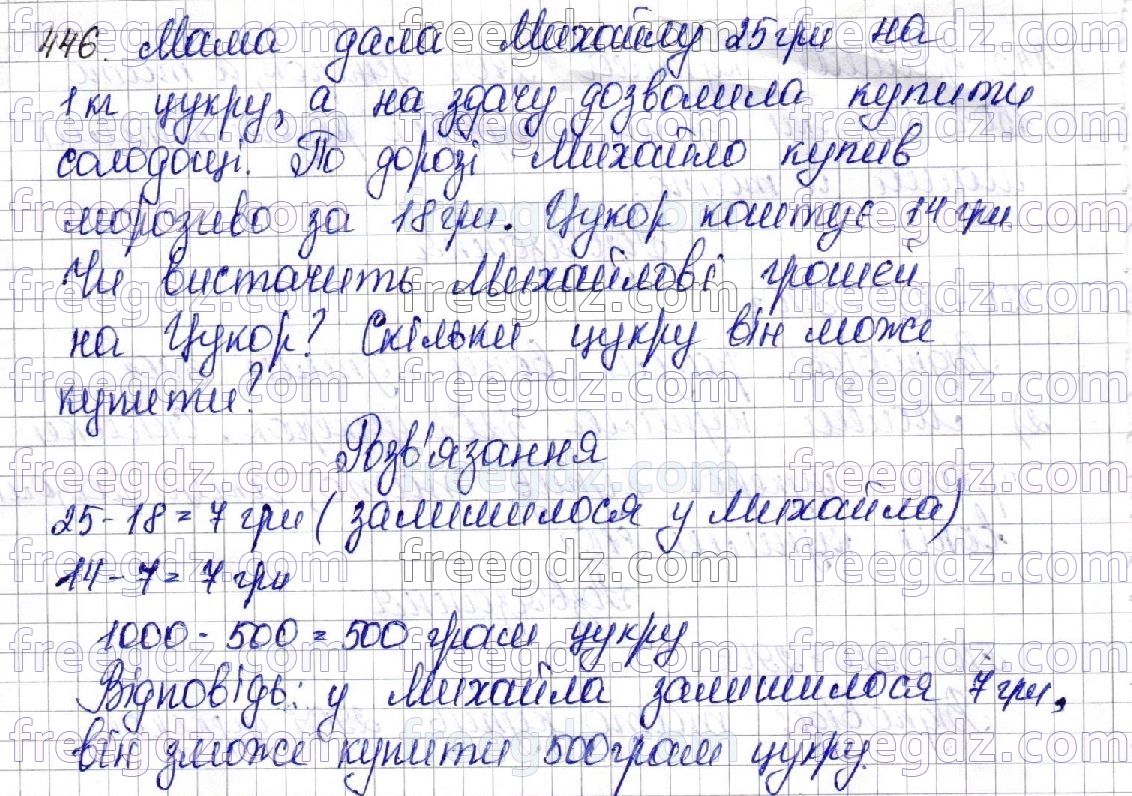 446. Мама дала Михайлу 25 грн на
1 кг цукру, а на здачу дозволила купити
солодощі. По дорозі Михайло купив
морозиво за 18 грн. Цукор коштує 14 грн
Чи вистачить Михайлові грошей
на Цукор? Скільки цукру він може
купити?
Розв'язання
25-18=7 грн (залишилося у Михайла)
14-7=7 грн
1000-500=500 грам цукру
Відповідь: у Михайла залишилося 7 грн,
він зможе купити 500 грам цукру.
freegdz.com